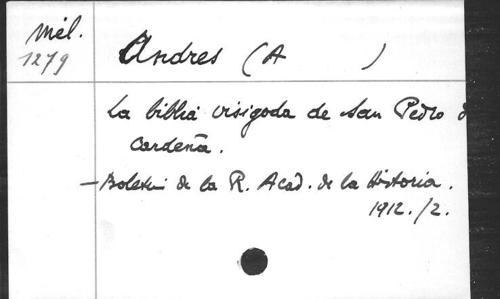 Mél.
1279
Andres (A )
La biblia visigoda de San Pedro d
Cardeña.
- Boletin de la R. Acad. de la Historia.
1912./2.